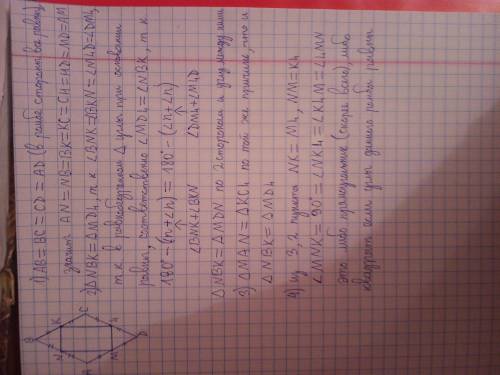 B
N
K
A
C
M
h
D
1) AB = BC = CD = AD (в ромбе стороны все равны),
значит AN = NB = BK = KC = CH = HD = MD = AM
2) ΔNBK = ΔMDh, т к ∠BNK = ∠BKN = ∠MhD = ∠DMh,
т.к в равнобедренном Δ углы при основании
равны, соответственно ∠MDh = ∠NBK, т к
180° - (∠n + ∠n) = 180° - (∠n + ∠n)
∠BNK + ∠BKN ∠DMh + ∠MhD
ΔNBK = ΔMDN по 2 сторонам и углу между ними
3) ΔMAN = ΔKCh по той же причине, что и
ΔNBK = ΔMDh
4) из 3, 2 пункта NK = Mh, NM = Kh
∠MNK = 90° = ∠NKh = ∠KhM = ∠hMN
это либо прямоугольник (скорее всего), либо
квадрат если углы данного ромба равны